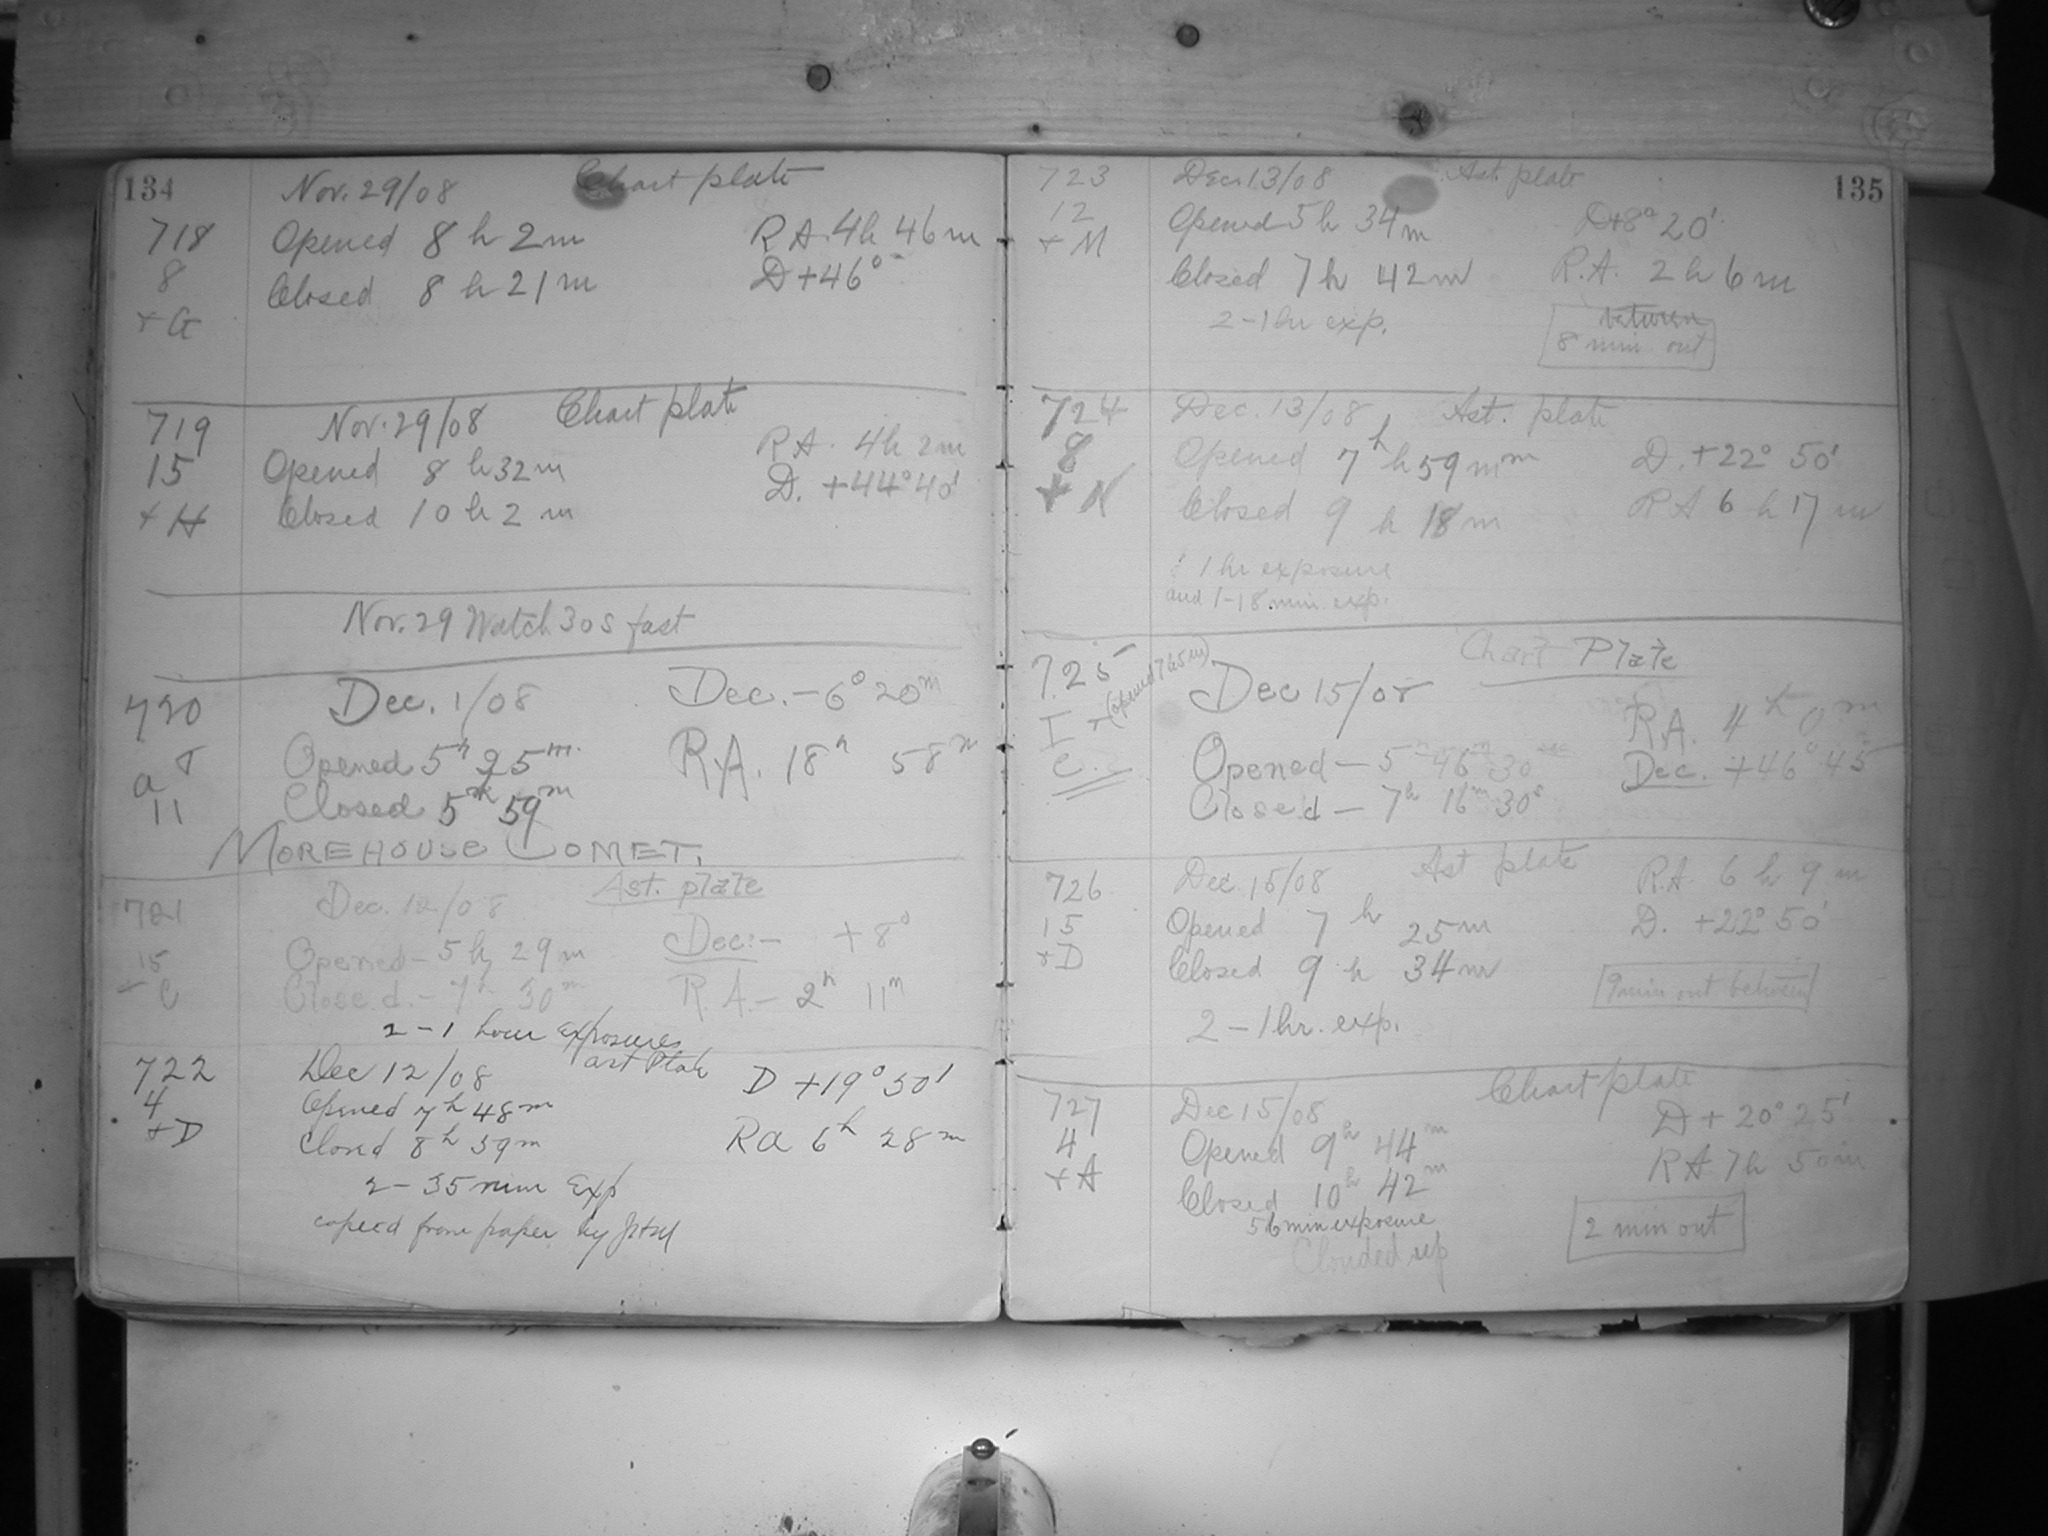 134
Nov. 29/08 Chart plate
718 Opened 8 h 2 m RA. 4h 46m
8 Closed 8 h 21 m D +46°
+ G
719 Nov. 29/08 Chart plate
15 Opened 8 h 32 m RA. 4h 2m
+ H Closed 10 h 2 m D. +44° 40'
Nov. 29 Watch 30s fast
720 Dec. 1/08 Dec. – 6° 20m
a Opened 5h 25m. R.A. 18h 58m
11 Closed 5h 59m
MOREHOUSE COMET.
721 Dec. 12/08 Ast. plate
15 Opened – 5 h 29 m Dec:– +8°
C Closed – 7h 30m R.A. – 2h 11m
2 – 1 hour exposures
722 Dec 12/08 ast Plate D +19° 50'
4 Opened 7h 48m
+D Closed 8h 59m Ra 6h 28m
2 – 35 min Exp
copied from paper by
135
723 Dec. 13/08 Ast. plate
12 Opened 5 h 34m D+8° 20'
+ M Closed 7 h 42m R.A. 2 h 6m
2 – 1 hr exp. between
8 min out
724 Dec. 13/08 Ast. plate
8 Opened 7 h 59m D. +22° 50'
+ N Closed 9 h 18m RA 6 h 17 m
1 hr exposure
and 1–18 min. exp.
725 (opened 7h5m) Chart Plate
I + Dec 15/08 RA. 4h 0m
C. Opened – 5h 46m 30sec Dec. +46° 45'
Closed – 7h 16m 30s
726 Dec. 15/08 Ast plate R.A. 6 h 9 m
15 Opened 7 h 25m D. +22° 50'
+D Closed 9 h 34m
9 min out between
2 – 1 hr. exp.
727 Dec 15/08 Chart plate
4 Opened 9h 44m D + 20° 25'
+ A Closed 10h 42m RA 7h 50m
56 min exposure 2 min out
Clouded up